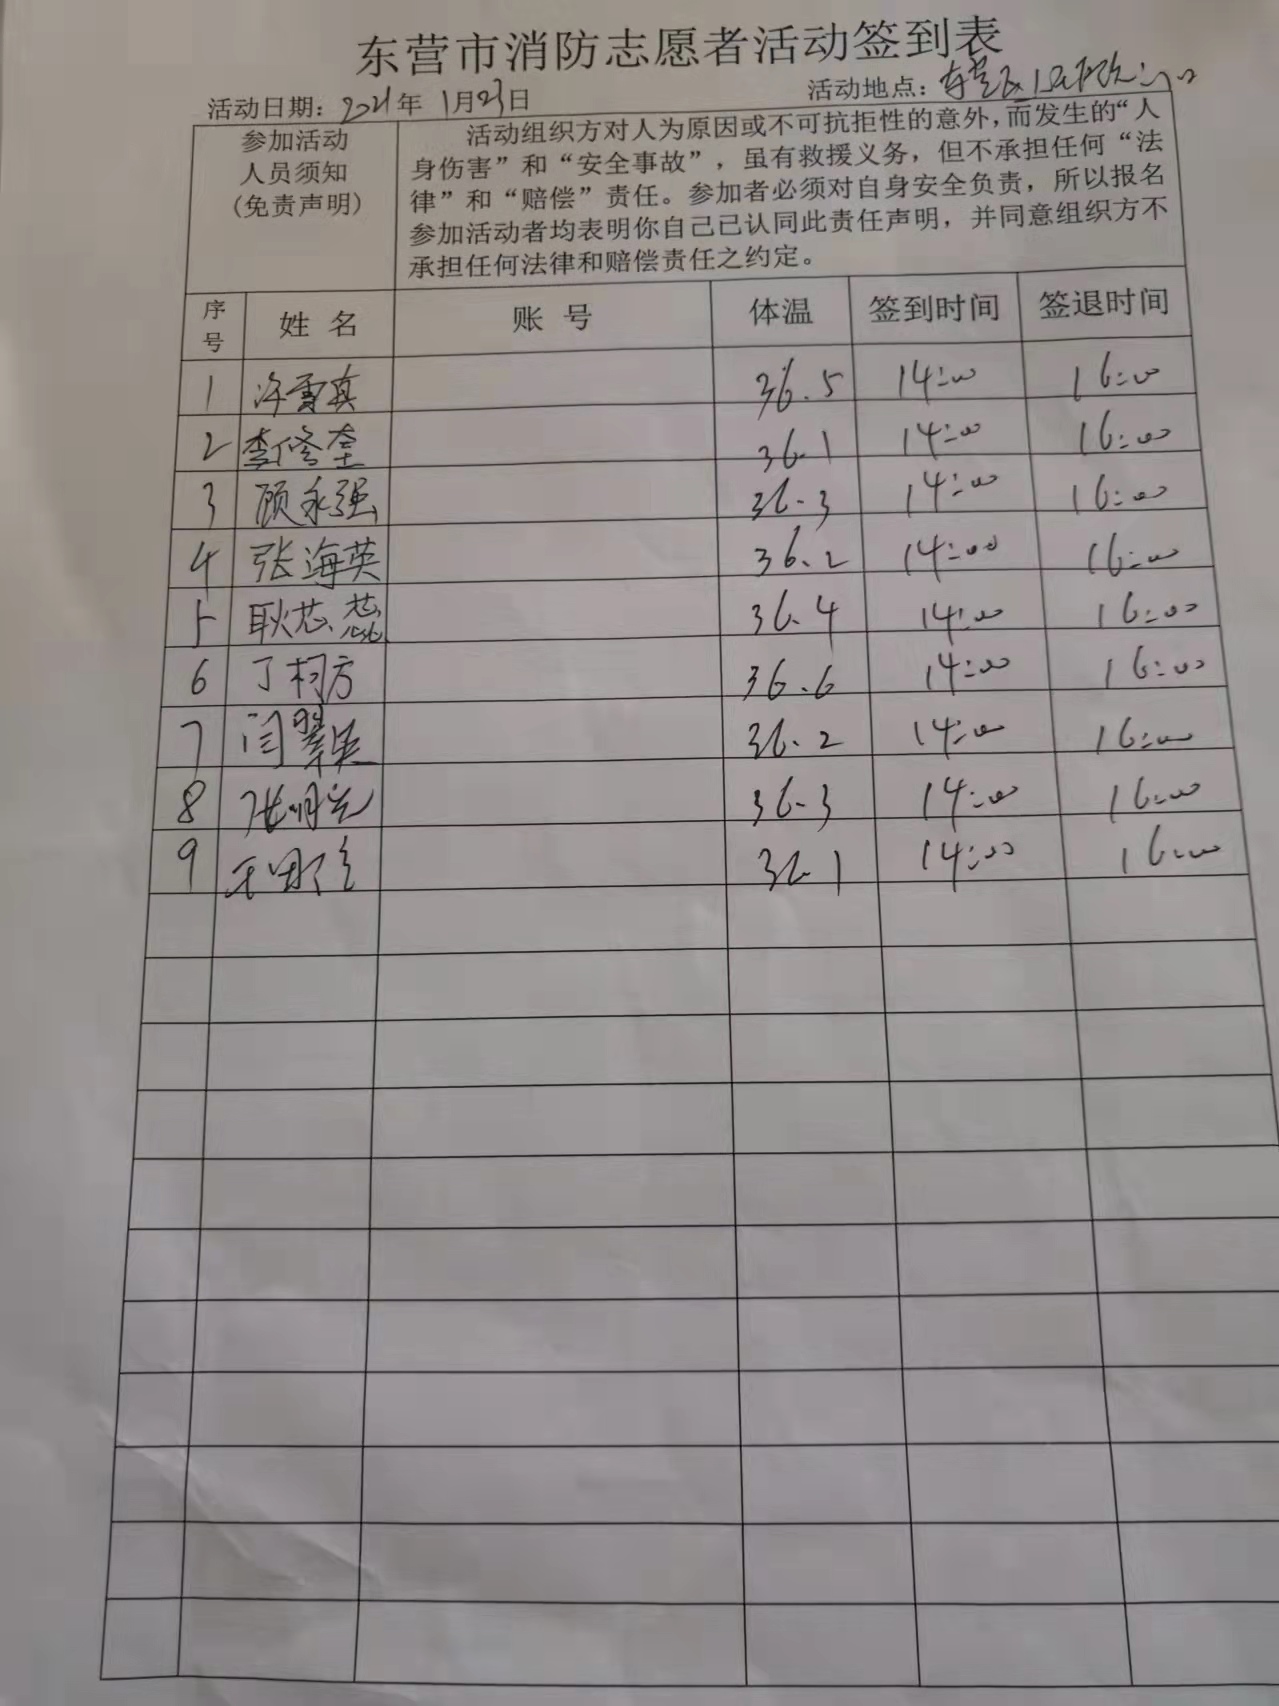 东营市消防志愿者活动签到表
活动日期：2021年 1月23日 活动地点：东营区人民医院门口
参加活动
人员须知
(免责声明)
活动组织方对人为原因或不可抗拒性的意外，而发生的“人
身伤害”和“安全事故”，虽有救援义务，但不承担任何“法
律”和“赔偿”责任。参加者必须对自身安全负责，所以报名
参加活动者均表明你自己已认同此责任声明，并同意组织方不
承担任何法律和赔偿责任之约定。
序号 姓名 账号 体温 签到时间 签退时间
1 许雪真 36.5 14:00 16:00
2 李修奎 36.1 14:00 16:00
3 顾永强 36.3 14:00 16:00
4 张海英 36.2 14:00 16:00
5 耿芯蕊 36.4 14:00 16:00
6 丁柯方 36.6 14:00 16:00
7 闫翠英 36.2 14:00 16:00
8 张明光 36.3 14:00 16:00
9 36.1 14:00 16:00